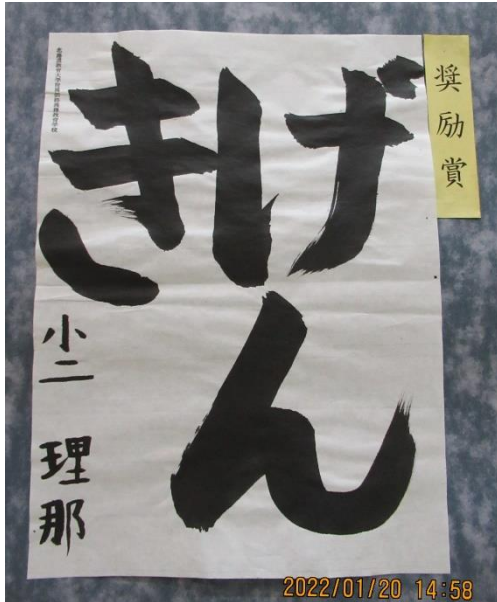 奨励賞
げん
き
小二 理那
2022/01/20 14:58